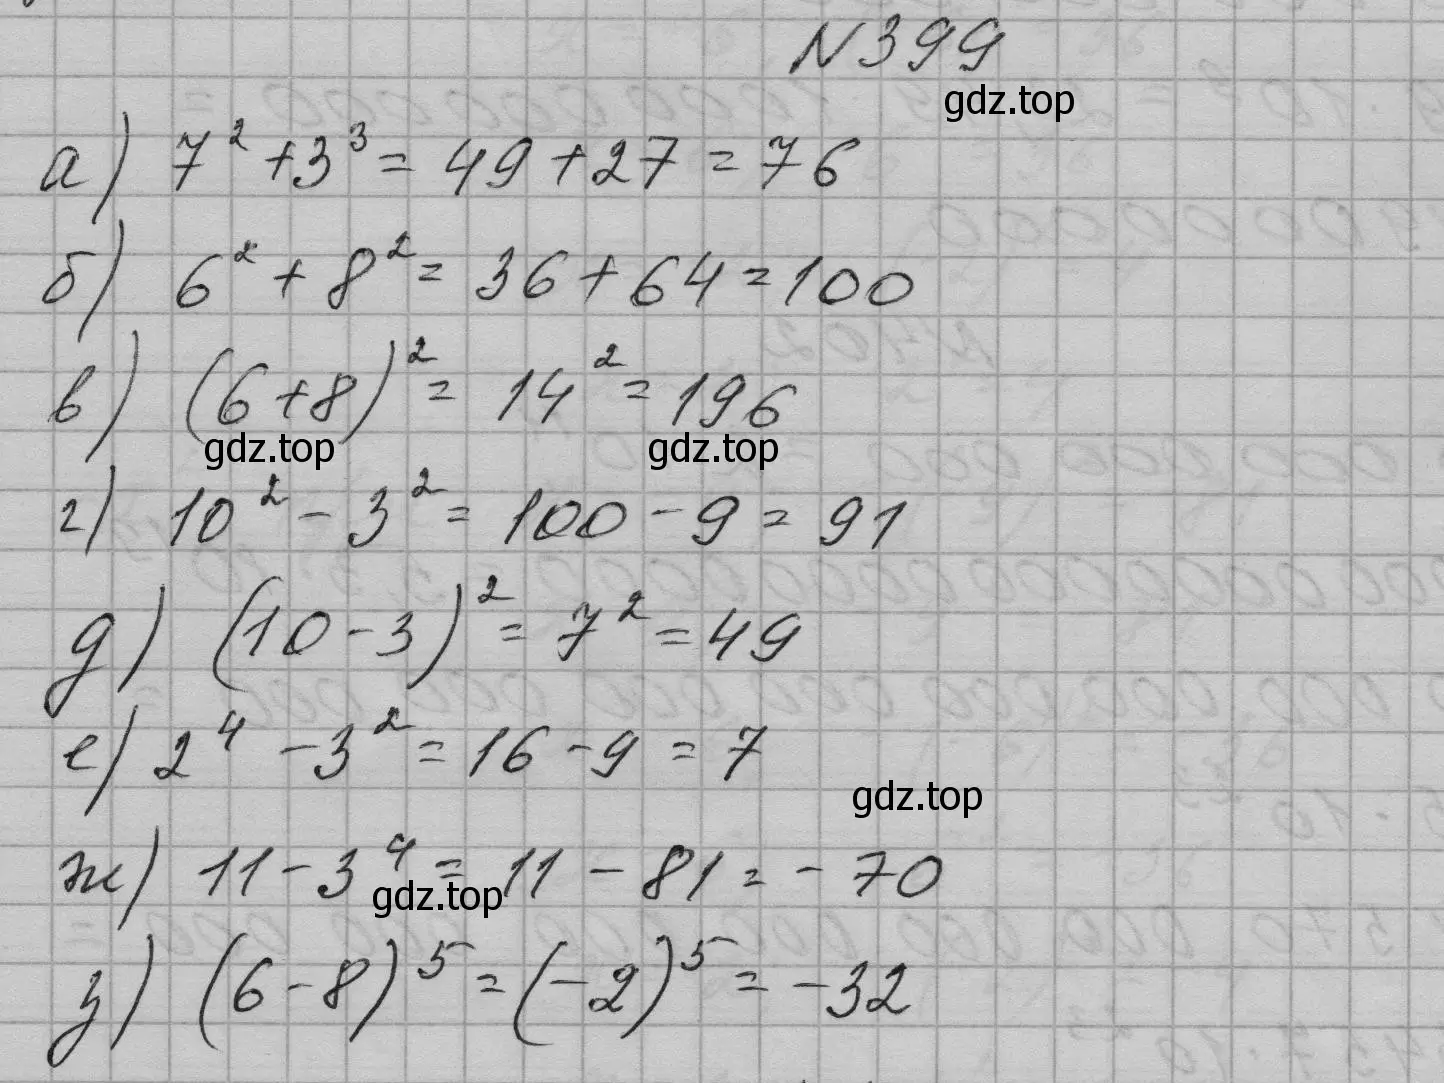 N399
gdz.top
а) 7² + 3³ = 49 + 27 = 76
б) 6² + 8² = 36 + 64 = 100
в) (6 + 8)² = 14² = 196
gdz.top gdz.top
г) 10² - 3² = 100 - 9 = 91
д) (10 - 3)² = 7² = 49
е) 2⁴ - 3² = 16 - 9 = 7
gdz.top
ж) 11 - 3⁴ = 11 - 81 = - 70
gdz.top
з) (6 - 8)⁵ = (-2)⁵ = -32